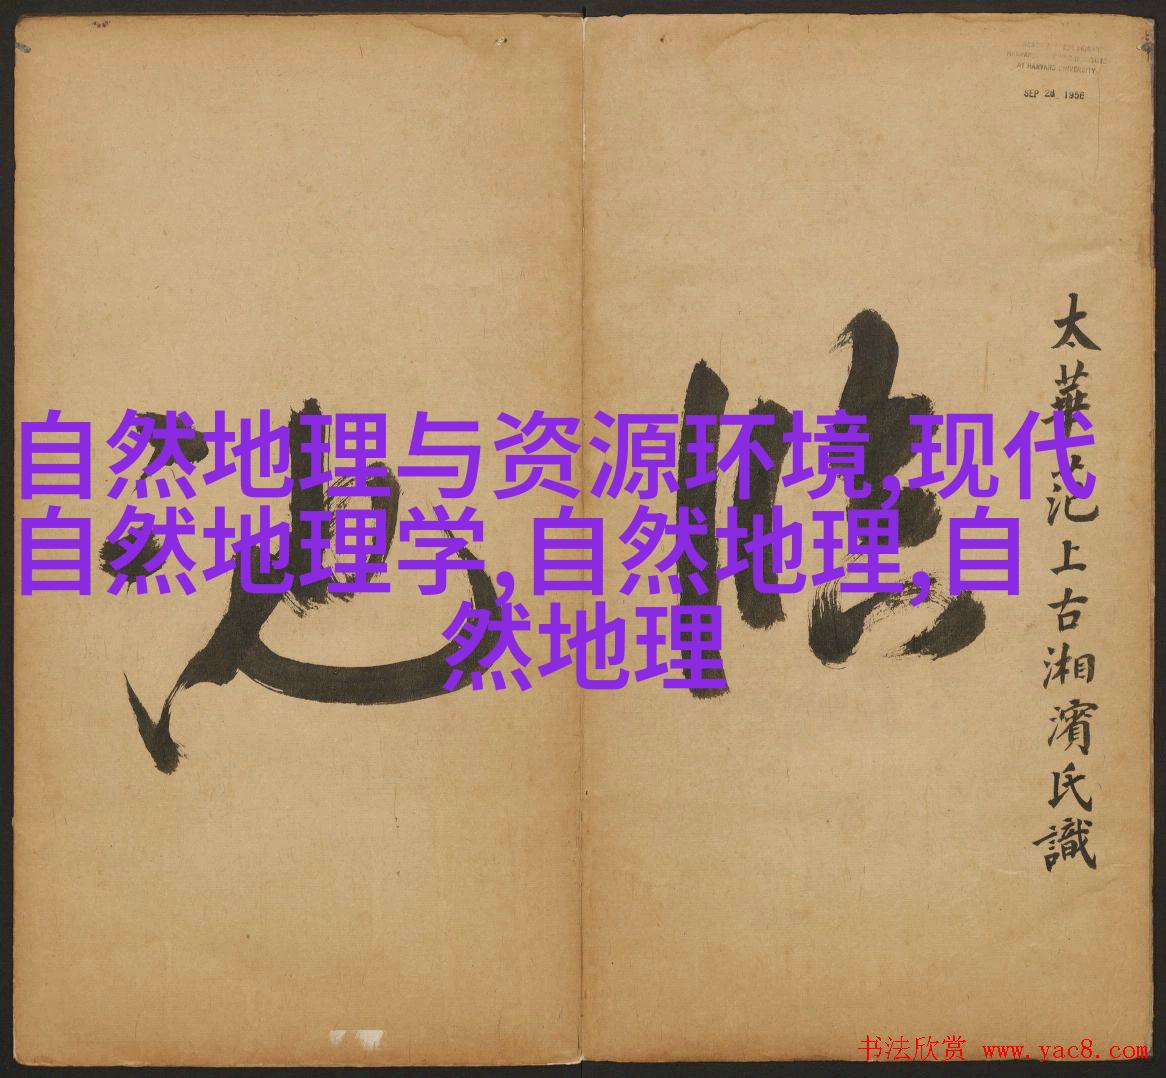 AT HARVARD UNIVERSITY
SEP 28 1956
自然地理与资源环境,现代
自然地理学,自然地理,自
然地理
太華范上古湘濱氏識
书法欣赏 www.yac8.com